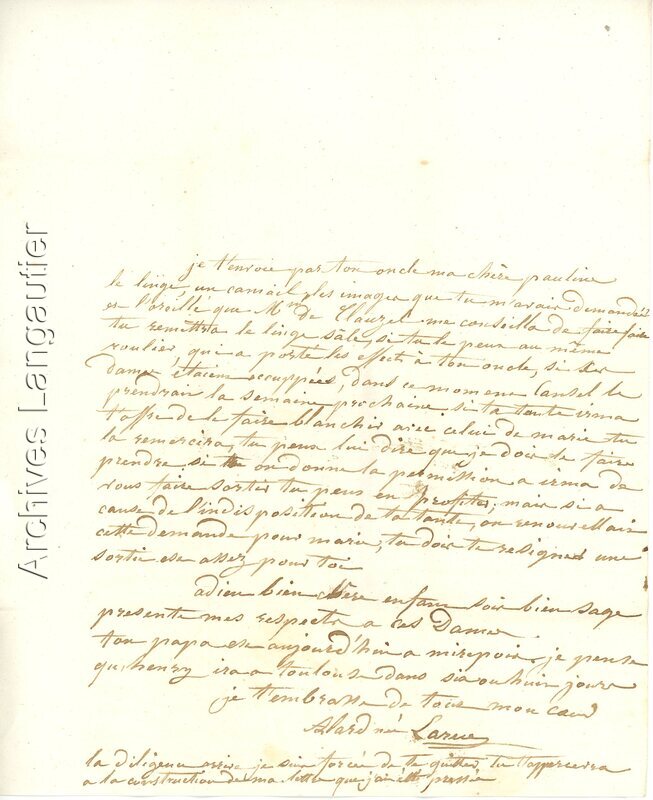 je t'envoie par ton oncle ma chère pauline
le linge, un camail, les images que tu m'avais demandés
et l'oreillé que Mme de Clauzel me conseilla de faire faire
tu remettra le linge sâle, si tu le peux au même
roulier qui a porté les effets à ton oncle, si ses
dames étaient occuppées, dans ce moment Cansel le
prendrait la semaine prochaine. si ta tante irma
t'offre de le faire blanchir avec celui de marie tu
la remercira, tu peux lui dire que je dois le faire
prendre si on donne la permission a irma de
vous faire sortir tu peux en profiter, mais si a
cause de l'indisposition de ta tante, on renouvellait
cette demande pour marie, tu dois te résigner une
sortie est assez pour toi
adieu bien chère enfant sois bien sage
presente mes respects a ces Dames.
ton papa est aujourd'hui a mirepoix, je pense
qu'henry ira a toulouse dans six ou huit jours
je t'embrasse de tous mon cœur
Alard née Larue
la diligence arrive je suis forcée de te quitter, tu t'appercevra
a la construction de ma lettre que j'ai été pressée
Archives Langautier